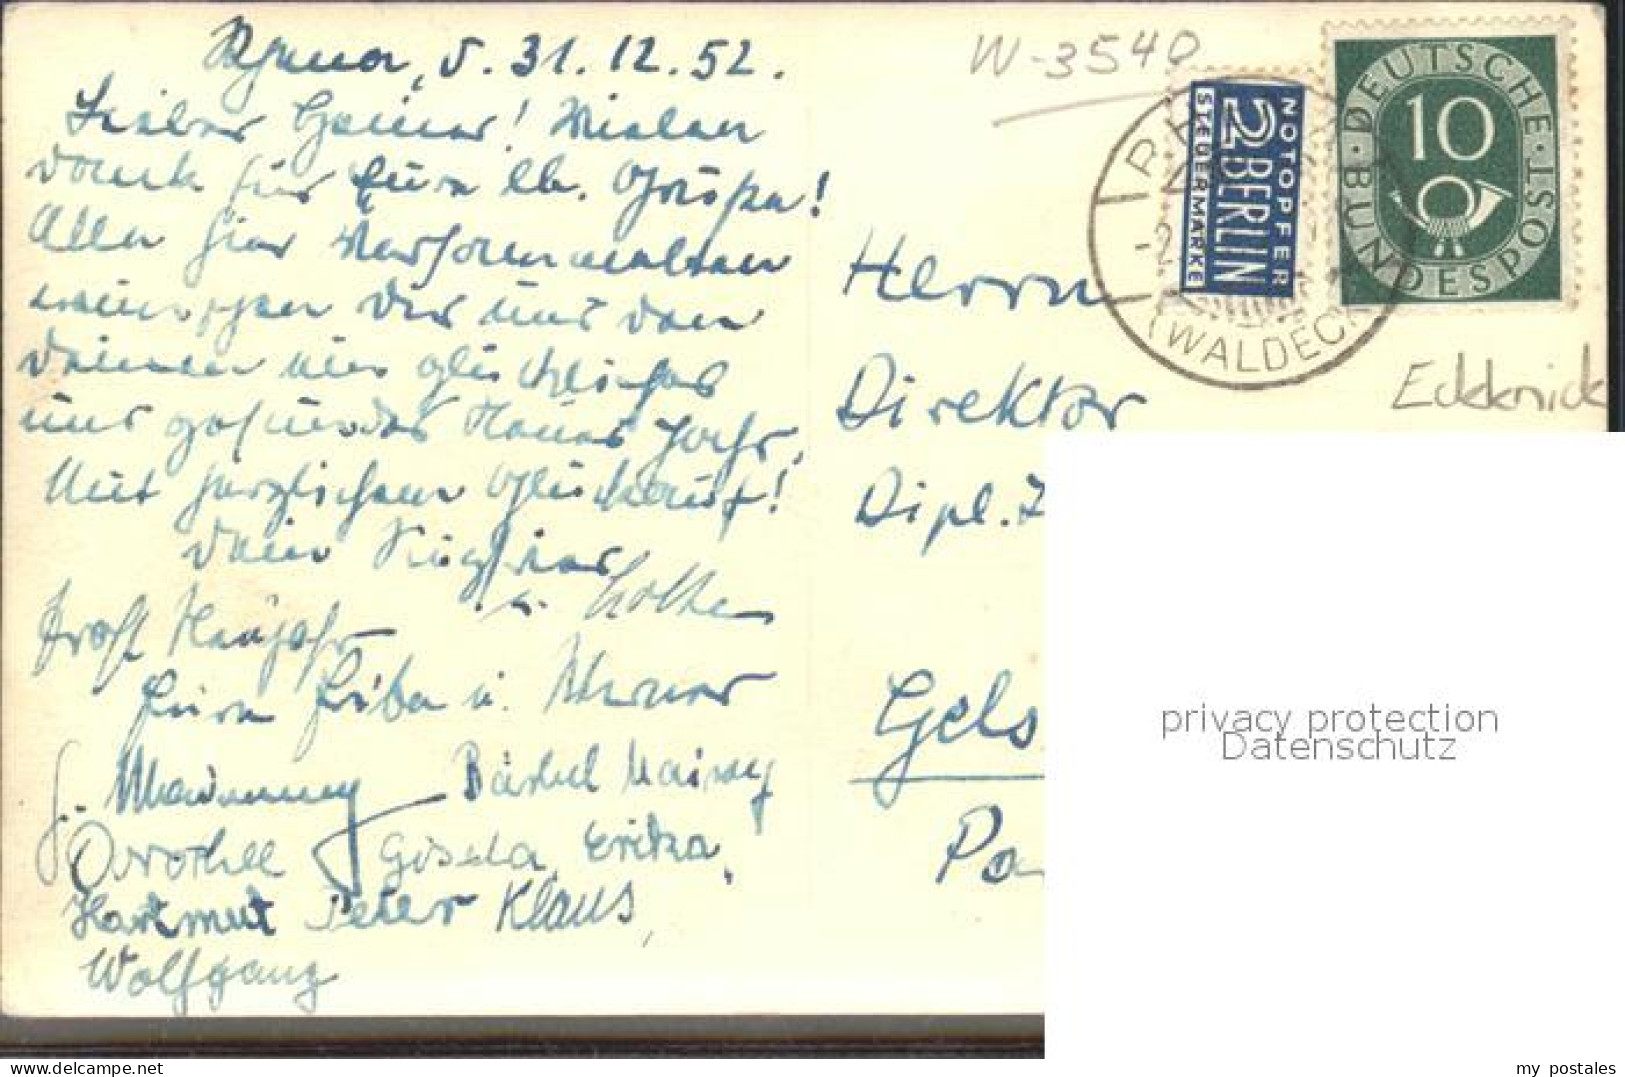 Rhena, d. 31.12.52.
Lieber Heiner! Vielen
Dank für Eure lb. Grüße!
Alle hier Versammelten
wünschen Dir und den
Deinen ein glückliches
und gesundes Neues Jahr.
Mit herzlichem Glückauf!
Dein
u. Lotte
Prosit Neujahr
Eure Liba u. Werner
Bärbel
Dorothee Gisela, Erika,
Hartmut Peter Klaus,
Wolfgang
W-3540
NOTOPFER
2 BERLIN
STEUERMARKE
DEUTSCHE BUNDESPOST
10
(WALDECK
Herrn
Direktor
Dipl. I
Gels
Pa
privacy protection
Datenschutz
my postales
delcampe.net